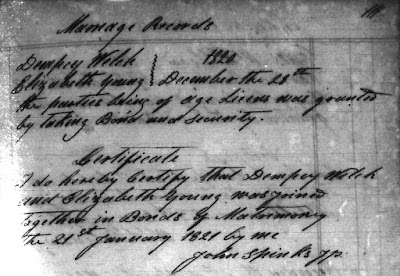 Marriage Records
Dempey Welch } 1820
Elizabeth Young } December the 28th
the parties being of age Licens was granted
by taking Bond and security.
Certificate
I do hereby Certify that Dempey Welch
and Elizabeth Young was joined
together in Bonds of Matrimoney
the 21st January 1821 by me
John Spinks JP.